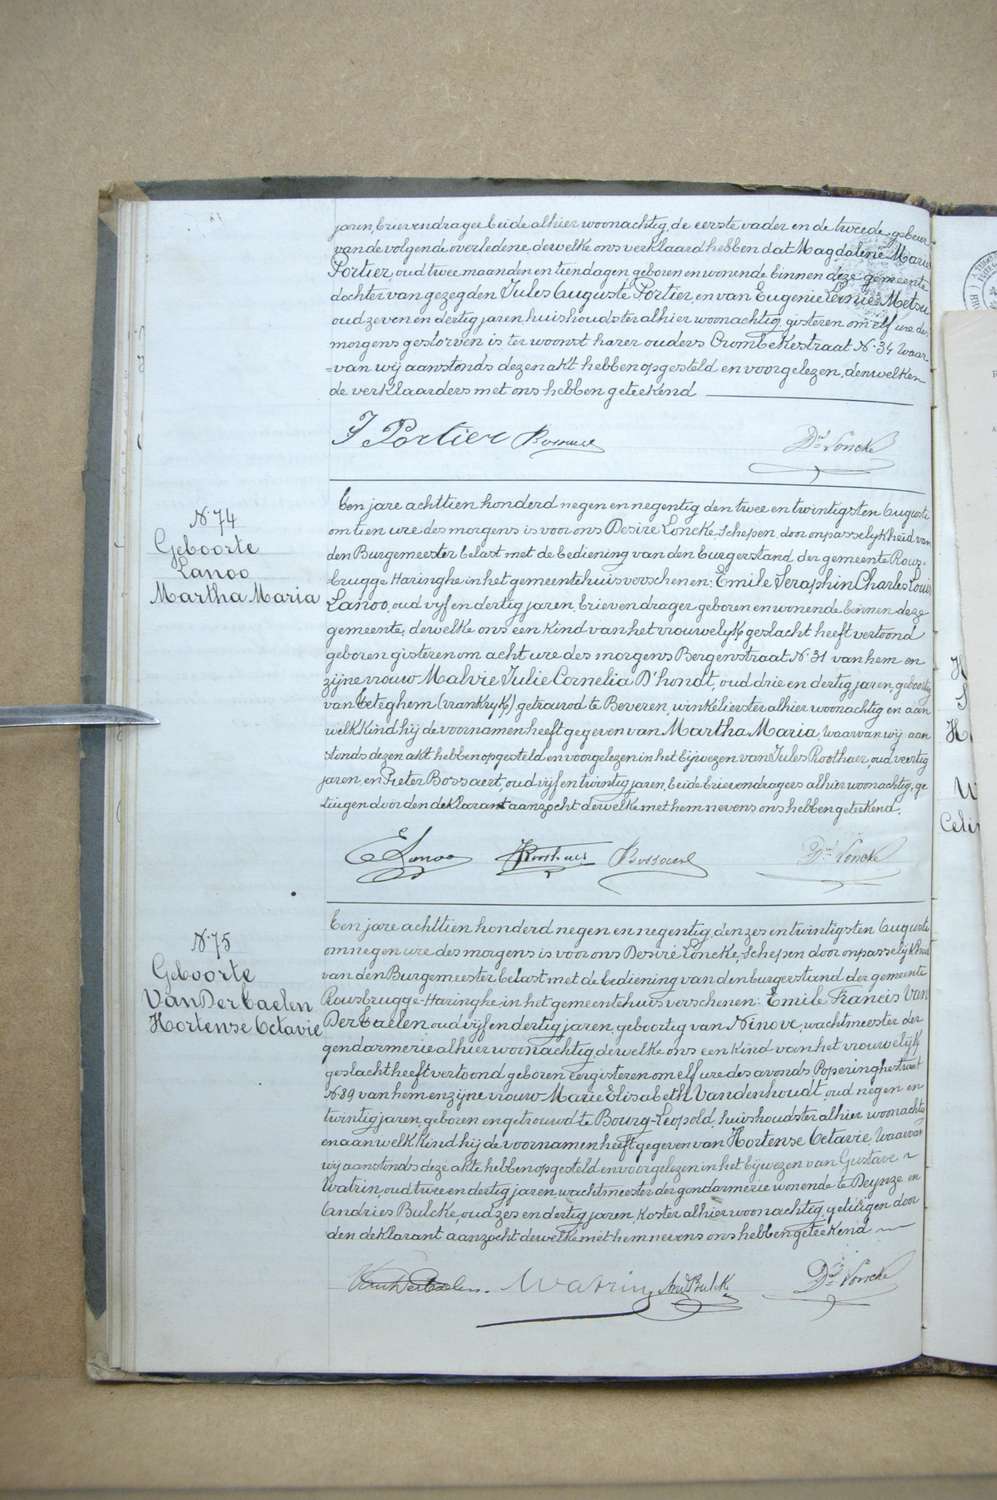 jaren, brievendrager beide alhier woonachtig, de eerste vader en de tweede gebuur
van de volgende overledene dewelke ons verklaard hebben dat Magdalene Marie
Portier oud twee maanden en tien dagen geboren en wonende binnen deze gemeente
dochter van gezegden Jules Auguste Portier, en van Eugenie Leonie Metsu
oud zeven en dertig jaren huishoudster alhier woonachtig gisteren om elf ure des
morgens gestorven is ter woonst harer ouders Crombekestraat N. 34 Waar-
=van wij aanstonds dezen akt hebben opgesteld en voorgelezen, denwelken
de verklaarders met ons hebben geteekend
J Portier Bossaert Dré Loncke
N. 74
Geboorte
Lanoo
Martha Maria
Een jare achttien honderd negen en negentig den twee en twintigsten Augusti
om tien ure des morgens is voor ons Desiré Loncke, Schepen, door onpasselykheid van
den Burgemeester belast met de bediening van den burgerstand, der gemeente Rous-
brugge Haringhe in het gemeentehuis verschenen: Emile Seraphin Charles Louis
Lanoo, oud vyf en dertig jaren, brievendrager geboren en wonende binnen deze
gemeente, dewelke ons een kind van het vrouwelyk geslacht heeft vertoond
geboren gisteren om acht ure des morgens Bergenstraat N. 31 van hem en
zijne vrouw Malvie Julie Cornelia D'hondt, oud drie en dertig jaren, geboortig
van Eeteghem (Vrankryk) getrouwd te Beveren, winkelierster alhier woonachtig en aan
welk kind hij de voornamen heeft gegeven van Martha Maria, waarvan wij aan
stonds dezen akt hebben opgesteld en voorgelezen in het bijwezen van Jules Roothaer, oud veertig
jaren, en Pieter Bossaert, oud vijf en twintig jaren, beide brievendragers alhier woonachtig, ge
tuigen door den deklarant aanzocht dewelke met hem nevens ons hebben geteekend.
E Lanoo Roothaer Bossaert Dré Loncke
N. 75
Geboorte
VanDerEaelen
Hortense Octavie
Een jare achttien honderd negen en negentig, den zes en twintigsten Augusti
om negen ure des morgens is voor ons Desiré Loncke, Schepen door onpasselijkheid
van den Burgemeester belast met de bediening van den burgerstand der gemeente
Rousbrugge-Haringhe in het gemeentehuis verschenen: Emile Francis Van
DerEaelen, oud vijf en dertig jaren, geboortig van Ninove, wachtmeester der
gendarmerie alhier woonachtig, dewelke ons een kind van het vrouwelijk
geslacht heeft vertoond geboren eergisteren om elf ure des avonds Poperinghestraat
N. 89 van hem en zijne vrouw Marie Elisabeth Vandenhoudt, oud negen en
twintig jaren, geboren en getrouwd te Bourg-Leopold, huishoudster alhier woonachtig
en aan welk kind hij de voornamen heeft gegeven van Hortense Octavie, Waarvan
wij aanstonds deze akte hebben opgesteld en voorgelezen in het bijwezen van Gustave
Watrin, oud twee en dertig jaren, wachtmeester der gendarmerie wonende te Deynze en
Andries Bulcke, oud zes en dertig jaren, Koster alhier woonachtig, getuigen door
den deklarant aanzocht dewelke met hem nevens ons hebben geteekend
VanDerEaelen. Watrin And Bulcke Dré Loncke